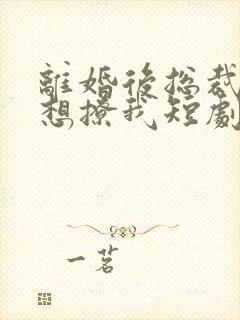 離婚後總裁
想撩我短劇
一茗